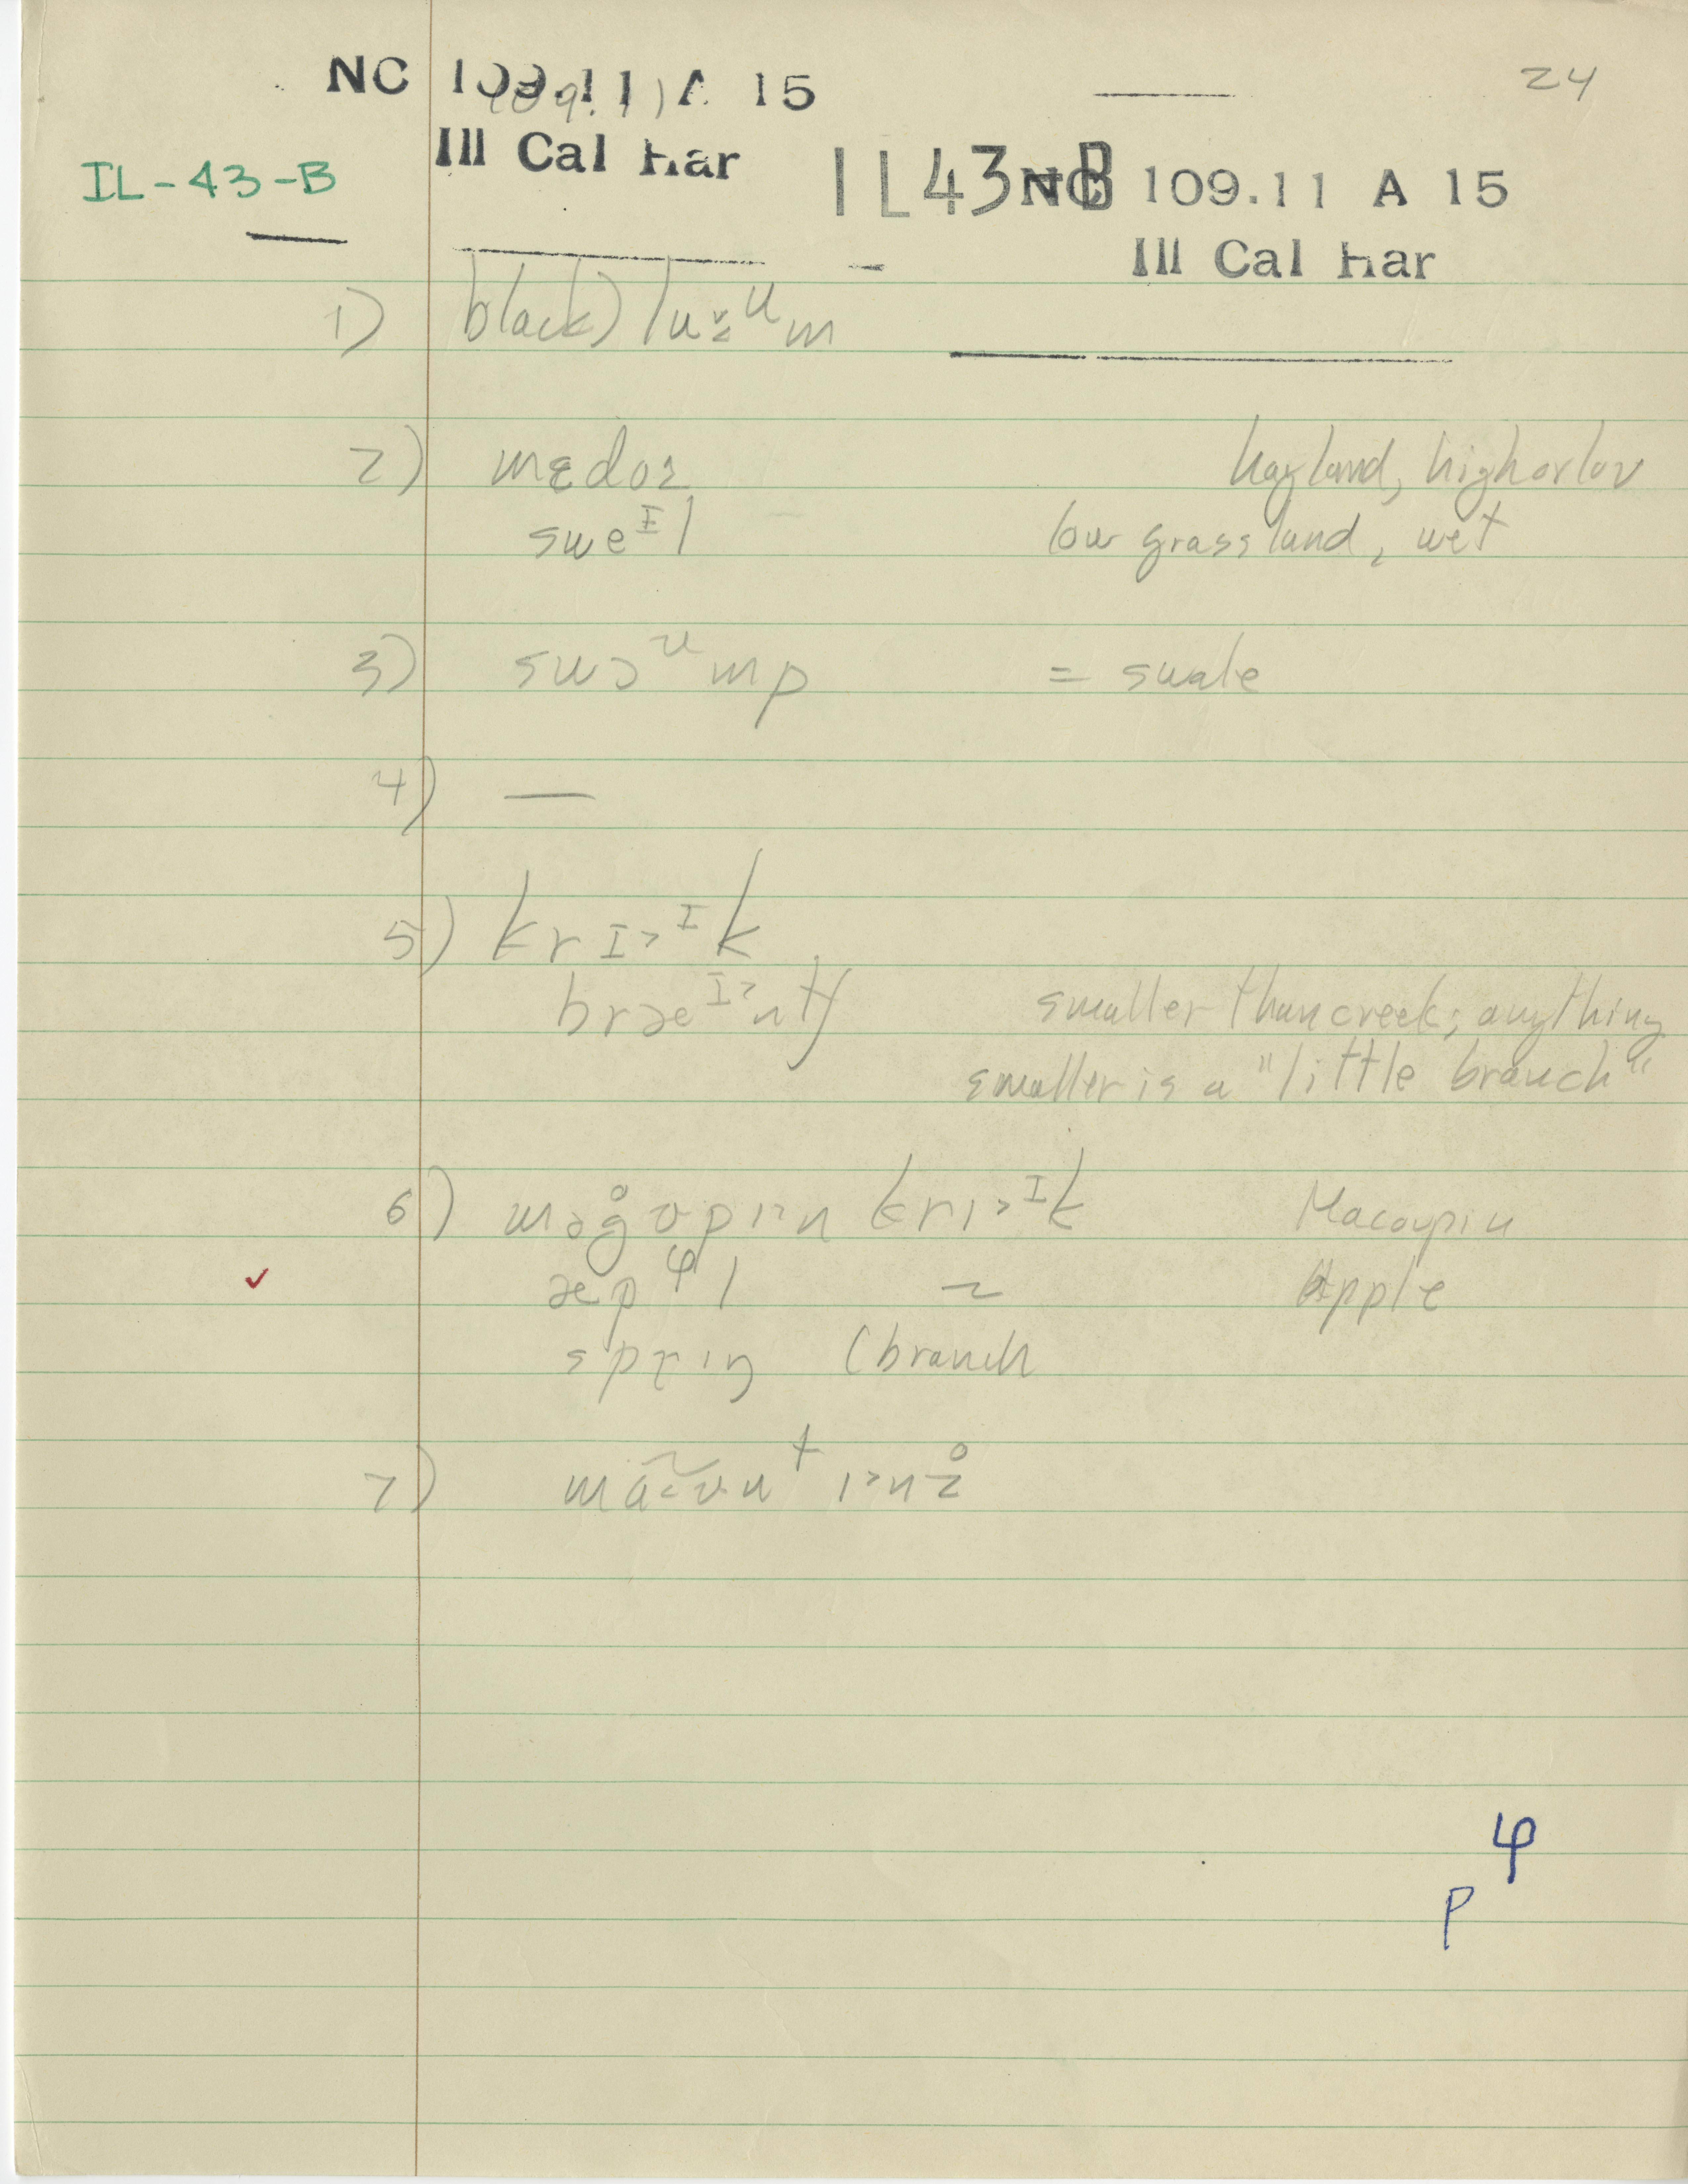 NC 109.11 A 15
24
Ill Cal Har
IL-43-B
IL43 B NC 109.11 A 15
Ill Cal Har
1) black)
2) hayland, high or low
sweᴵl low grassland, wet
3) swɔᵘmp = swale
4) —
5) krI>ᴵk
smaller than creek; anything
smaller is a "little branch"
6) Macoupin
✓ æpᵠl ~ Apple
(branch
7)
φ
p